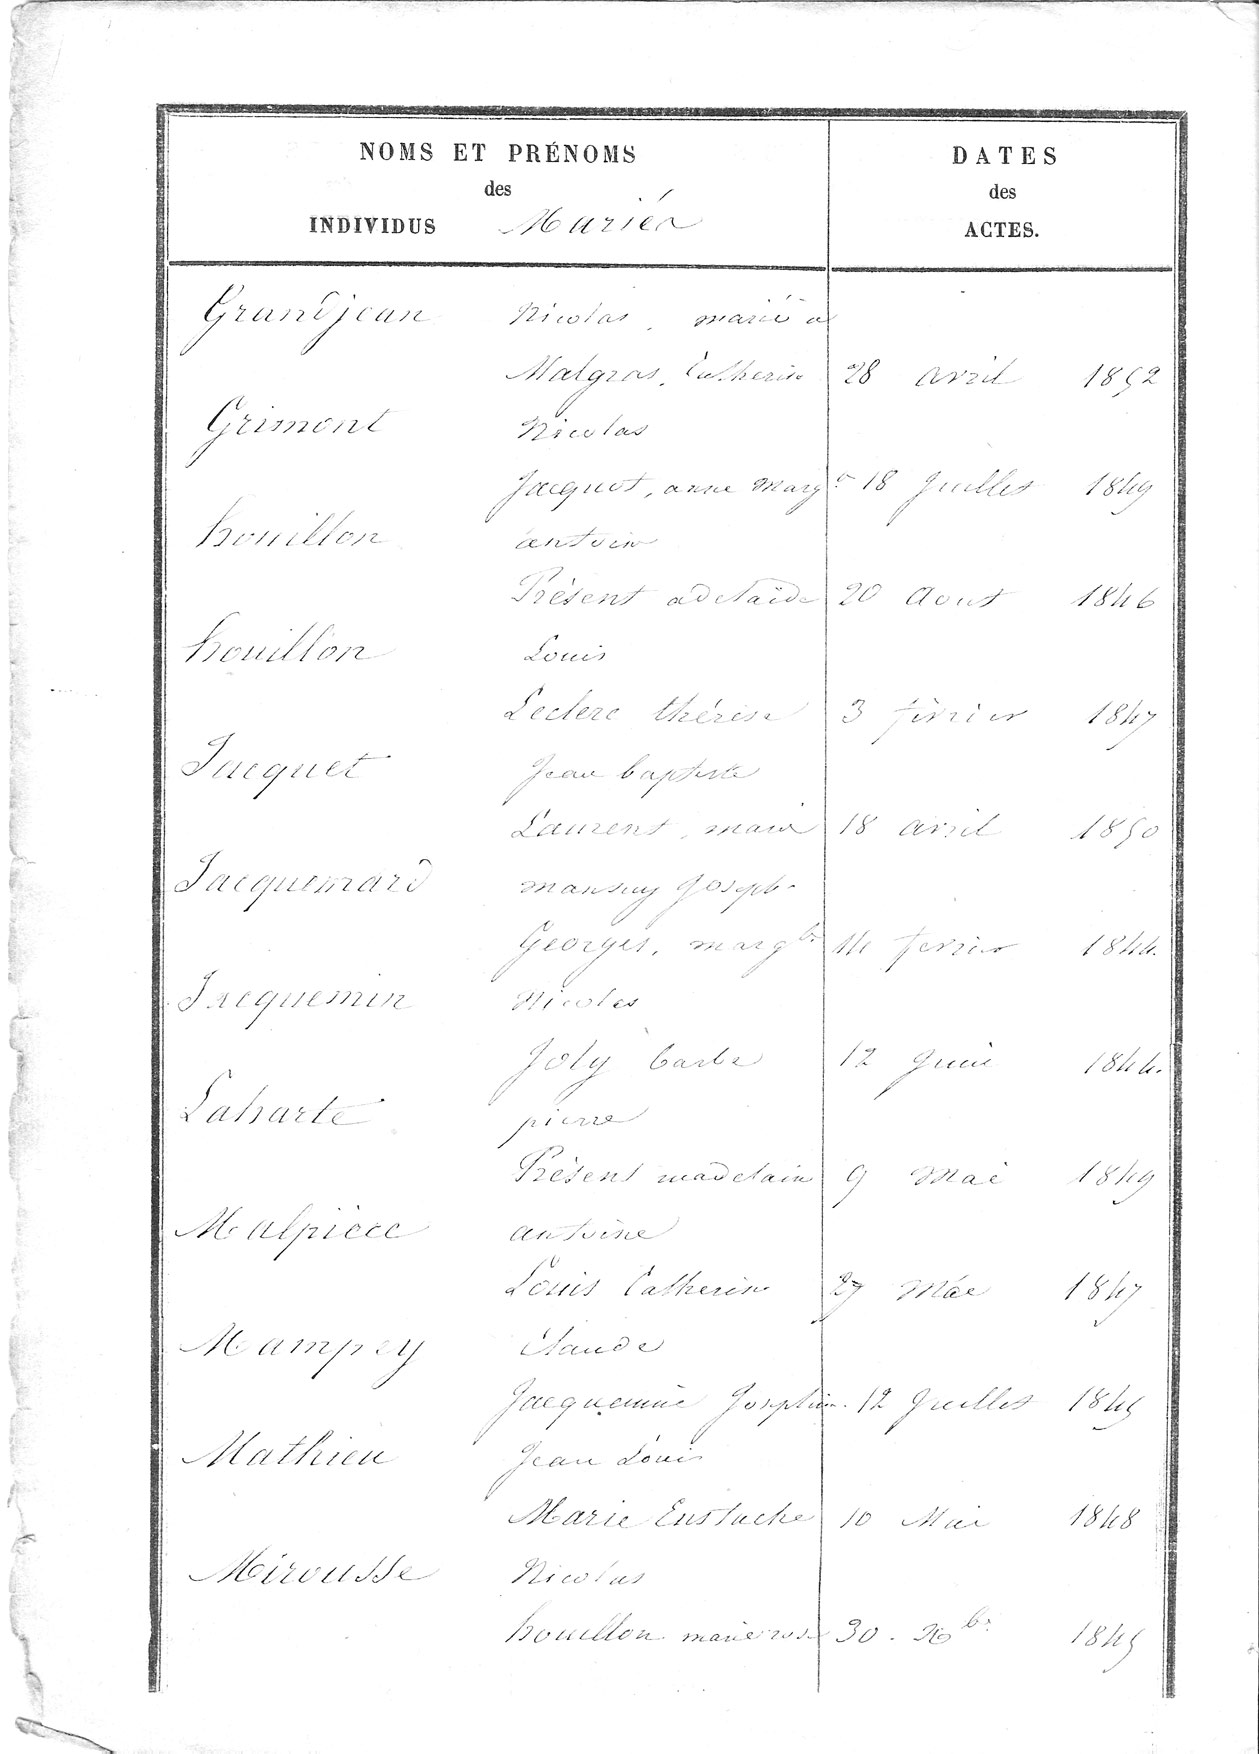 NOMS ET PRÉNOMS
des
INDIVIDUS Mariés
DATES
des
ACTES.
Grandjean Nicolas, marié a
Malgras, Catherine 28 avril 1852
Grimont Nicolas
Jacquot, anne marg te 18 Juillet 1849
houillon antoine
Présent adelaïde 20 Aout 1846
houillon Louis
Leclerc thérèse 3 février 1847
Jacquet Jean baptiste
Laurent, marie 18 avril 1850
Jacquemard mansuy Joseph
Georges, marg te 14 fevrier 1844.
Jacquemin Nicolas
Joly barbe 12 Juin 1844.
Laharte pierre
Présent madelaine 9 Mai 1849
Malpièce antoine
Louis Catherine 27 Mai 1847
Mampey Claude
Jacquemin Josephine 12 Juillet 1845
Mathieu Jean Louis
Marie Eustache 10 Mai 1848
Mirousse Nicolas
houillon marie rose 30. Xbre 1845